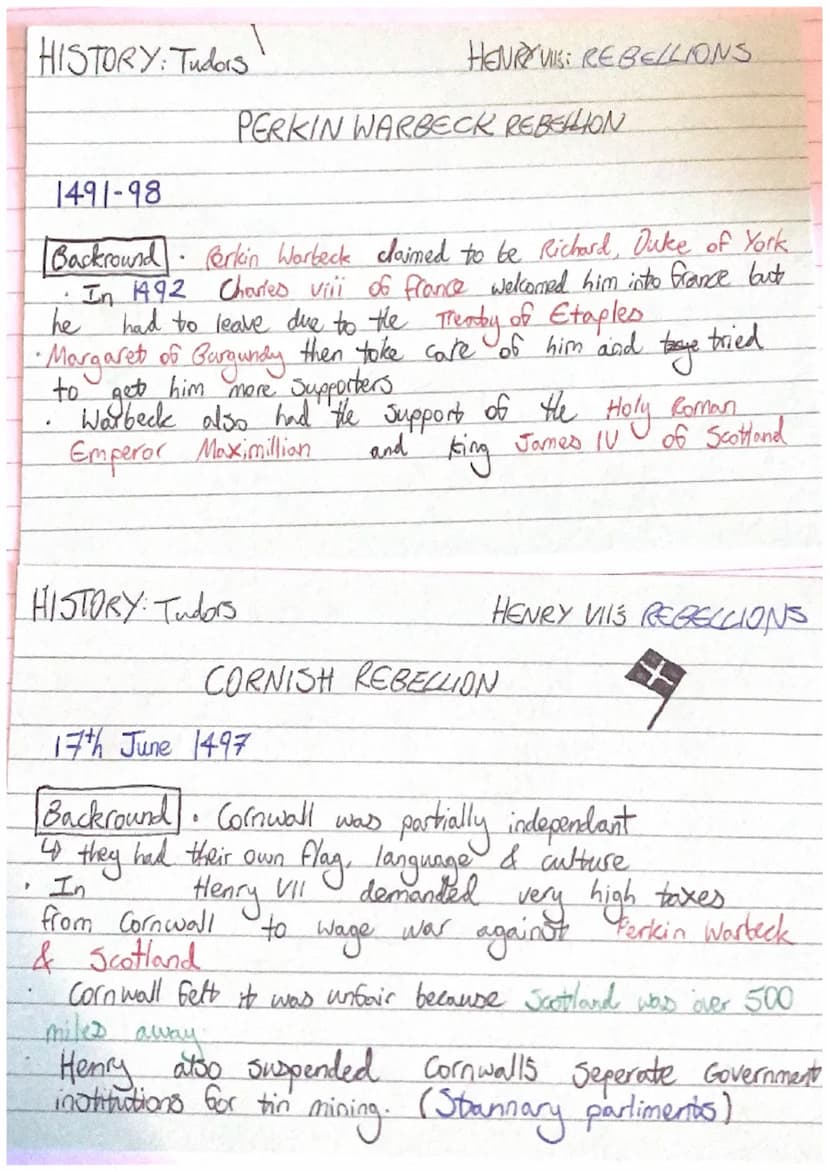 HISTORY: Tudors
HENRY VII's: REBELLIONS
PERKIN WARBECK REBELLION
1491-98
Backround · Perkin Warbeck claimed to be Richard, Duke of York
· In 1492 Charles viii of france welcomed him into france but
he had to leave due to the Treaty of Etaples
· Margaret of Burgundy then toke care of him and tried
to get him more supporters
· Warbeck also had the support of the Holy Roman
Emperor Maximillian and king James IV of Scotland
HISTORY: Tudors
HENRY VII's REBELLIONS
CORNISH REBELLION
17th June 1497
Backround · Cornwall was partially independant
↳ they had their own flag, language & culture
· In Henry VII demanded very high taxes
from Cornwall to wage war against Perkin Warbeck
& Scotland
· Cornwall felt it was unfair because Scotland was over 500
miles away.
· Henry also suspended Cornwalls seperate Government
institutions for tin mining. (Stannary parliments)